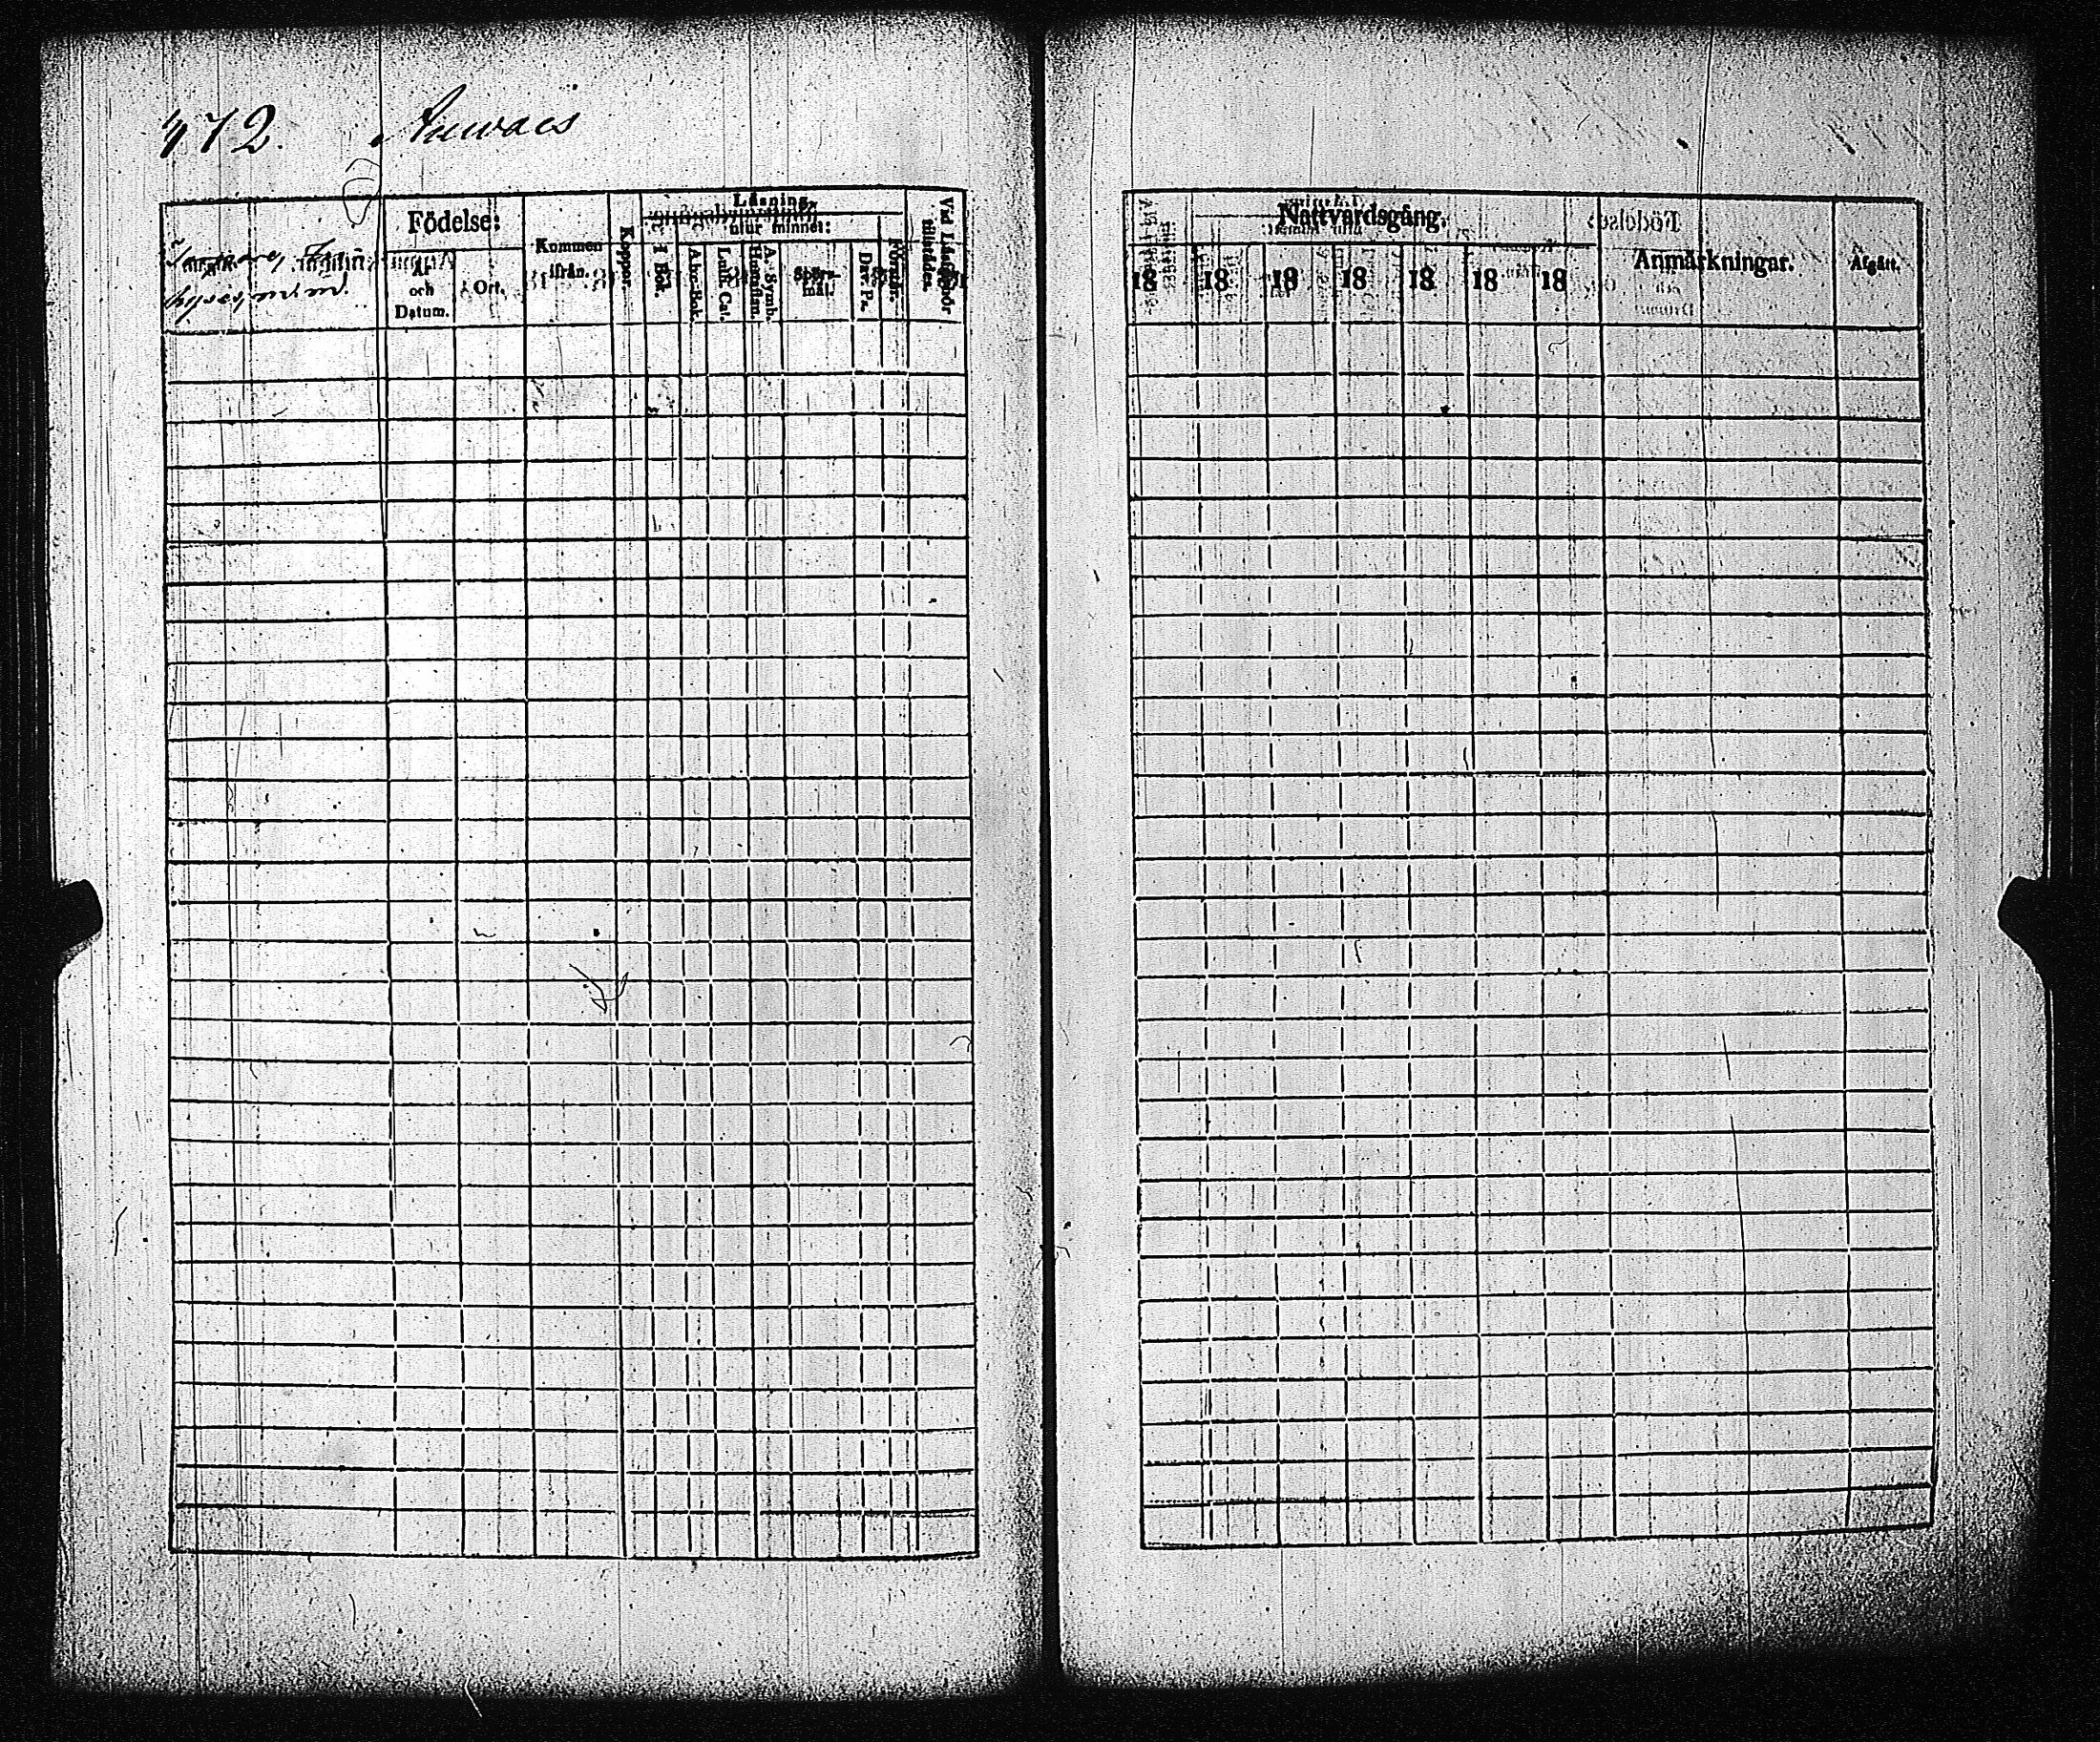 472. Auvais
Födelse:
År
och
Datum.
Ort.
Kommen
ifrån.
Koppor.
Läsning,
utur minnet:
I Bok.
Abc-Bok.
Luth. Cat.
A. Symb.
Hustaflan.
Spörs-
mål.
Dav. Ps.
Förstår.
Vid Läseförhör
tillstädes.
Nattvardsgång.
18 18 18 18 18 18 18
Anmärkningar.
Afgått.